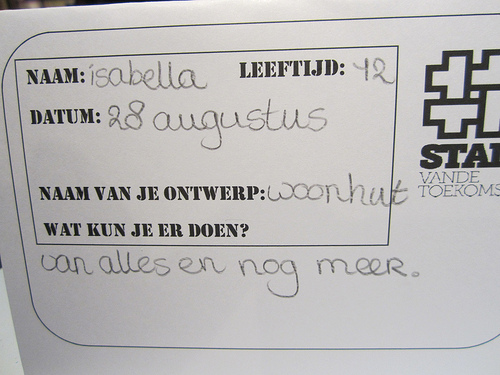 NAAM: isabella LEEFTIJD: 12
DATUM: 28 augustus
NAAM VAN JE ONTWERP: woonhut
WAT KUN JE ER DOEN?
van alles en nog meer.
STA
VANDE
TOEKOMS